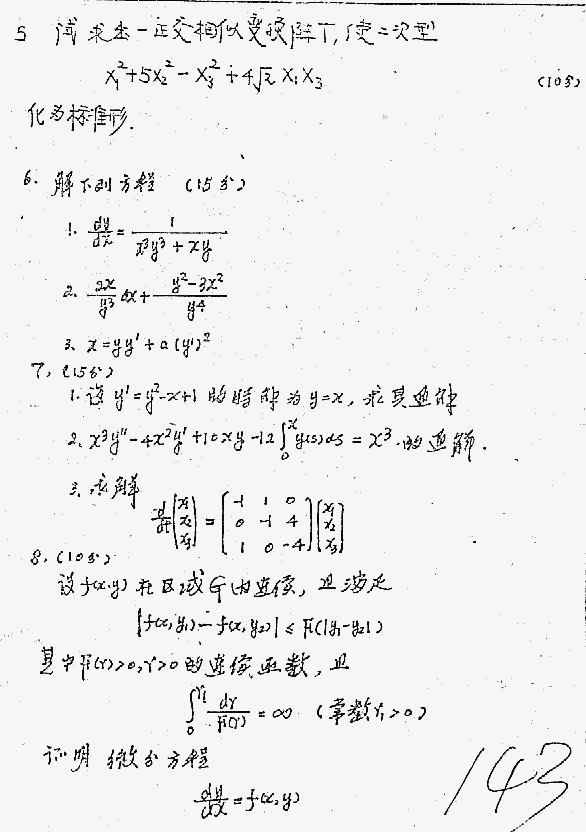 5 试求出一正交相似变换阵T,使二次型
x₁²+5x₂²-x₃²+4√2 x₁x₃ (10分)
化为标准形.
6. 解下列方程 (15分)
1. dy/dx = 1/(x³y³+xy)
2. 2x/y³ dx + (y²-3x²)/y⁴
3. x=yy'+a(y')²
7, (15分)
1. 设 y'=y²-x+1 的特解为 y=x, 求其通解
2. x³y''-4x²y'+10xy-12∫₀ˣy(s)ds = x³ 的通解.
3. 求解 d/dt [x₁ x₂ x₃] = [-1 1 0; 0 -1 4; 1 0 -4] [x₁ x₂ x₃]
8, (10分)
设 f(x,y) 在区域G内连续, 且满足
|f(x,y₁)-f(x,y₂)| ≤ F(|y₁-y₂|)
其中F(r)>0, r>0 的连续函数, 且
∫₀^r₁ dr/F(r) = ∞ (常数r₁>0)
证明 微分方程
dy/dx = f(x,y)
143